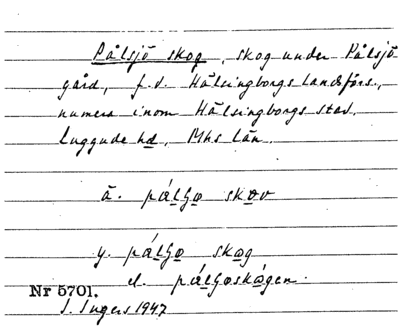 Pålsjö skog, skog under Pålsjö
gård, f.d. Hälsingborgs landsförs.,
numera inom Hälsingborgs stad.
Luggude hd, Mhs län.
ä.
y.
el.
Nr 5701.
I. Ingers 1947